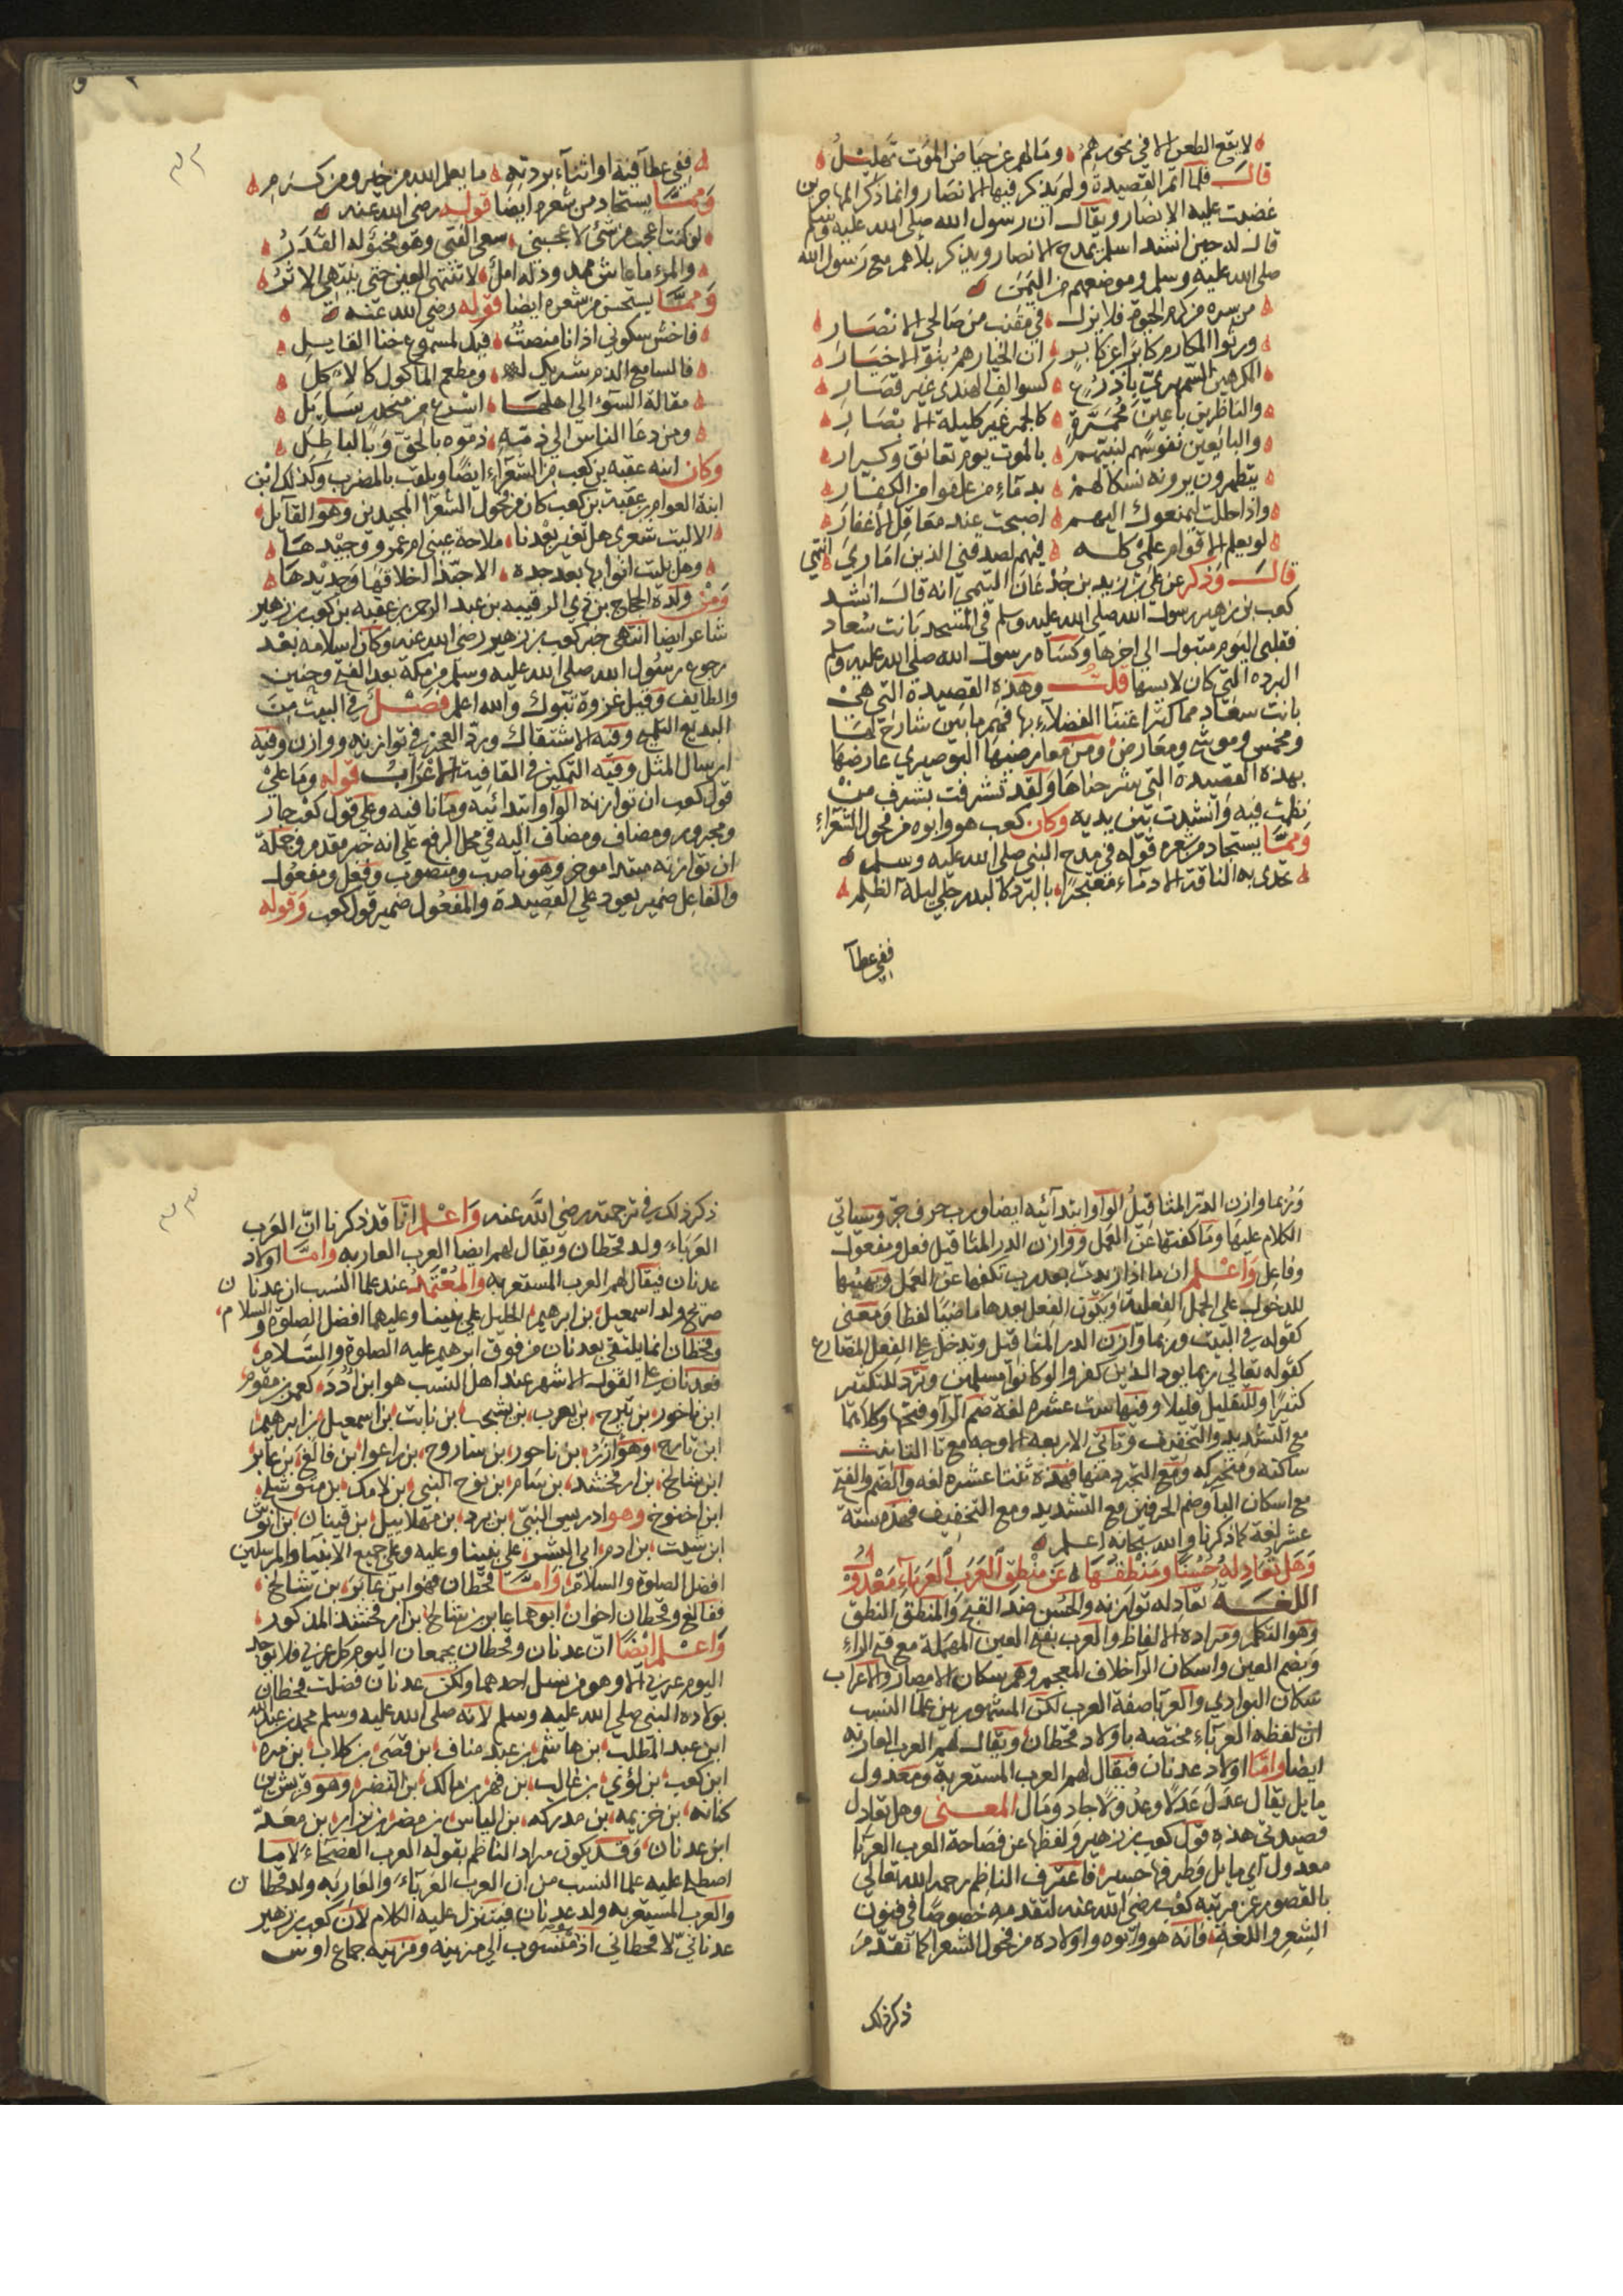 لا يقع الطعن الا في نحورهم وما لهم عن حياض الموت تهليل
قال فلما اتم القصيدة ولم يذكر فيها الانصار وانما ذكر المهاجرين
غضبت عليه الانصار ويقال ان رسول الله صلى الله عليه وسلم
قال له حين انشد اسلم بمدح الانصار ويذكر بلاهم مع رسول الله
صلى الله عليه وسلم وموضعهم من اليمن
من سره كرم الحيوة فلا يزل في مقنب من صالحي الانصار
ورثوا المكارم كابرا عن كابر ان الخيار هم بنو الاخيار
المكرهين السمهري باذرع كسوالف الهندي غير قصار
والناظرين باعين محمرة كالجمر غير كليلة الابصار
والبايعين نفوسهم لنبيهم بالموت يوم تعانق وكرار
يتطهرون يرونه نسكا لهم بدماء من علقوا من الكفار
واذا حللت ليمنعوك اليهم اصبحت عند معاقل الاغفار
لو يعلم الاقوام علمي كله فيهم لصدقني الذين اماري انتهى
قال وذكر عن علي بن زيد بن جدعان التيمي انه قال انشد
كعب بن زهير رسول الله صلى الله عليه وسلم في المسجد بانت سعاد
فقلبي اليوم متبول الى اخرها وكساه رسول الله صلى الله عليه وسلم
البرده التي كان لابسها قلت وهذه القصيدة التي هي
بانت سعاد مما كثر اعتنآ الفضلاء بها فمنهم ما بين شارح لها
ومخمس وموشح ومعارض ومن معارضيها البوصيري عارضها
بهذه القصيدة التي شرحناها ولقد تشرفت بشرف من
نظمت فيه وانشدت بين يديه وكان كعب هو وابوه من فحول الشعراء
ومما يستجاد من شعره قوله في مدح النبي صلى الله عليه وسلم
تخدي به الناقة الادماء معتجرا بالبرد كالبدر جلى ليلة الظلم
ففي عطآ
ففي عطآفيه او اثنآء بردته ما يعلم الله من خير ومن كرم
ومما يستجاد من شعره ايضا قوله رضي الله عنه
لو كنت اعجب من شئ لاعجبني سعي الفتى وهو مخبؤ له القدر
والمرء ما عاش ممدود له امل لا تنتهي العين حتى ينتهي الاثر
ومما يستحسن من شعره ايضا قوله رضي الله عنه
فاخش سكوتي اذ انا منصت فيك لمسموع خنا القايل
فالسامع الذم شريك له ومطعم الماكول كالاكل
مقالة السوء الى اهلها اسرع من منحدر سايل
ومن دعا الناس الى ذمه ذموه بالحق وبالباطل
وكان ابنه عقبه بن كعب من الشعراء ايضا ويلقب بالمضرب وكذلك ابن
ابنه العوام بن عقبة بن كعب كان من فحول الشعرآ المجيدين وهو القآيل
الا ليت شعري هل تغير بعدنا ملاحة عيني ام عمرو وجيدها
وهل بليت اثوابها بعد جده الا حبذا اخلاقها وجديدها
ومن ولده الحجاج بن ذي الرقيبه بن عبد الرحمن بن عقبه بن كعب بن زهير
شاعر ايضا انتهى خبر كعب بن زهير رضي الله عنه وكان اسلامه بعد
رجوع رسول الله صلى الله عليه وسلم من مكة بعد الفتح وحنين
والطايف وقبل غزوة تبوك والله اعلم فصل في البيت من
البديع التلميح وفيه الاشتقاق ورد العجز في توازنه ووازن وفيه
ارسال المثل وفيه التمكين في القافية الاعراب قوله وما على
قول كعب ان توازنه الواو ابتدائيه وما نافيه وعلى قول كعب جار
ومجرور ومضاف ومضاف اليه في محل الرفع على انه خبر مقدم وجملة
ان توازنه مبتدا موخر وهو ناصب ومنصوب وفعل ومفعول
والفاعل ضمير يعود على القصيدة والمفعول ضمير قول كعب وقوله
وربما وازن الدر المثاقيل الواو ابتدآئيه ايضا ورب حرف جر وسياتي
الكلام عليها وما كفتها عن العمل ووازن الدر المثاقيل فعل ومفعول
وفاعل واعلم ان ما اذا زيدت بعد رب تكفها عن العمل وتهيئها
للدخول على الجمل الفعلية ويكون الفعل بعدها ماضيا لفظا ومعنى
كقوله في البيت وربما وازن الدر المثاقيل وتدخل على الفعل المضارع
كقوله تعالى ربما يود الذين كفروا لو كانوا مسلمين وترد للتكثير
كثيرا وللتقليل قليلا وفيها ست عشره لغة ضم الرآ وفتحها وكلاهما
مع التشديد والتخفيف وتاتي الاربعه الاوجه مع تا التانيث
ساكنه ومتحركه ومع التجرد منها فهذه ثنتا عشره لغه والضم والفتح
مع اسكان البا وضم الحرفين مع التشديد ومع التخفيف فهذه ستة
عشر لغة كما ذكرنا والله سبحانه اعلم
وهل تعادله حسنا ومنطقها عن منطق العرب العرباء معدول
اللغه تعادله توازنه والحسن ضد القبح والمنطق النطق
وهو التكلم ومراده الالفاظ والعرب بفتح العين المهملة مع فتح الراء
وبضم العين واسكان الرآ خلاف العجم وهم سكان الامصار والاعراب
سكان البوادي والعربا صفة العرب لكن المشهور بين علما النسب
ان لفظه العرباء مختصه باولاد قحطان ويقال لهم العرب العاربه
ايضا واما اولاد عدنان فيقال لهم العرب المستعربة ومعدول
مايل يقال عدل عدلا وعدولا حاد ومال المعنى وهل تعادل
قصيدتي هذه قول كعب بن زهير ولفظها عن فصاحة العرب العربا
معدول اي مايل فاعترف الناظم رحمه الله تعالى
بالقصور عن مرتبه كعب رضي الله عنه لتقدمه خصوصا في فنون
الشعر واللغة فانه هو وابوه واولاده من فحول الشعرا كما تقدم
ذكر ذلك
ذكر ذلك في ترجمته رضي الله عنه واعلم انا قد ذكرنا ان العرب
العرباء ولد قحطان ويقال لهم ايضا العرب العاربه واما اولاد
عدنان فيقال لهم العرب المستعربه والمعتمد عند علما النسب ان عدنان
صريح ولد اسمعيل بن ابرهيم الخليل على نبينا وعليهما افضل الصلوة والسلام
وقحطان انما يلتقي بعدنان من فوق ابرهيم عليه الصلوة والسلام
فعدنان على القول الاشهر عند اهل النسب هو ابن ادد بن مقوم
ابن ناخور بن تيرح بن يعرب بن يشجب بن نابت بن اسمعيل بن ابرهيم
ابن تارح وهو ازر بن ناحور بن ساروح بن راعوا بن فالغ بن عابر
ابن شالخ بن ارفخشد بن سام بن نوح النبي بن لامك بن متوشلح
ابن اخنوخ وهو ادريس النبي بن يرد بن مهلاييل بن قينان بن انوش
ابن شيث بن ادم ابي البشر على نبينا وعليه وعلى جميع الانبيا والمرسلين
افضل الصلوة والسلام واما قحطان فهو ابن عابر بن شالخ
ففالغ وقحطان اخوان ابوهما عابر بن شالخ بن ارفخشد المذكور
واعلم ايضا ان عدنان وقحطان يجمعان اليوم كل عربي فلا يوجد
اليوم عربي الا وهو من نسل احدهما ولكن عدنان فضلت قحطان
بولاده النبي صلى الله عليه وسلم لانه صلى الله عليه وسلم محمد بن عبد الله
ابن عبد المطلب بن هاشم بن عبد مناف بن قصي بن كلاب بن مره
ابن كعب بن لؤي بن غالب بن فهر بن مالك بن النضر وهو قريش بن
كنانه بن خزيمه بن مدركه بن الياس بن مضر بن نزار بن معد
ابن عدنان وقد يكون مراد الناظم بقوله العرب العرباء الفصحاء لا ما
اصطلح عليه علما النسب من ان العرب العرباء والعاربه ولد قحطان
والعرب المستعربه ولد عدنان فيتنزل عليه الكلام لان كعب بن زهير
عدناني لا قحطاني اذ منسوب الى مزينه ومزينه جماع اوس